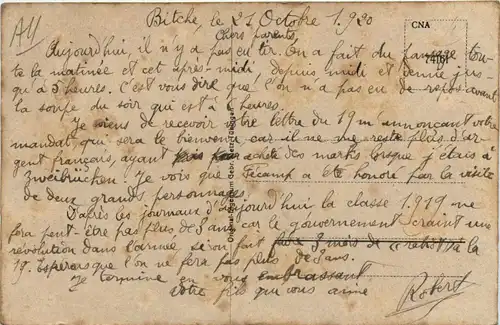 All
Bitche, le 21 Octobre 1920
CNA
74761
Chers parents,
Aujourd'hui, il n'y a pas eu tir. On a fait du pansage tou-
te la matinée et cet après-midi, depuis midi et demie jus-
qu'à 5 heures. C'est vous dire que l'on n'a pas eu de repos avant
la soupe du soir qui est à heures.
Je viens de recevoir votre lettre du 19 m'annonçant votre
mandat, qui sera le bienvenu car il ne me reste plus d'ar-
gent français, ayant acheté des marks lorsque j'étais à
Zweibrücken. Je vois que Fécamp a été honoré par la visite
de deux grands personnages.
D'après les journaux d'aujourd'hui la classe 1919 ne
fera peut-être pas plus de 3 ans car le gouvernement craint une
révolution dans l'armée si on fait faire 3 mois de à la
19. Espérons que l'on ne fera pas plus de 3 ans.
Je termine en vous embrassant
Votre fils qui vous aime
Robert